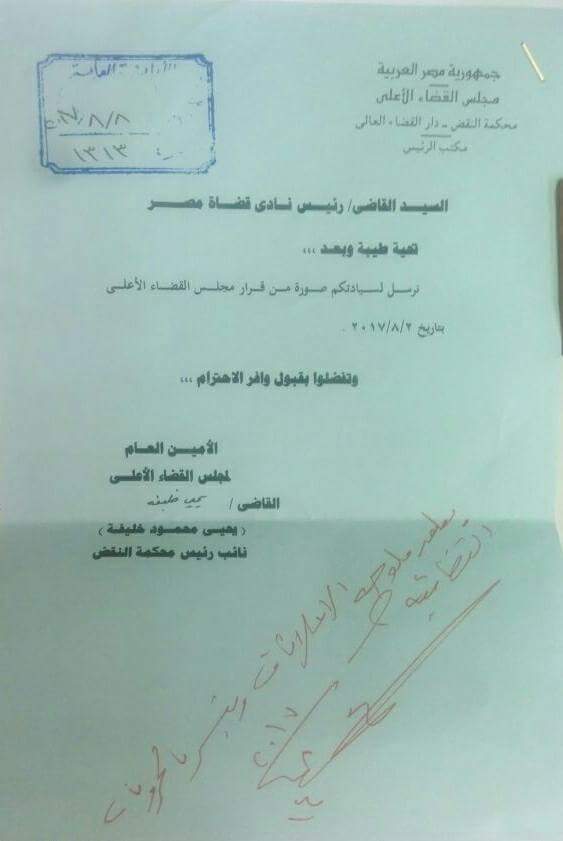 جمهورية مصر العربية
مجلس القضاء الأعلى
محكمة النقض - دار القضاء العالى
مكتب الرئيس
٢٠١٧/٨/٨
١٣١٣
السيد القاضى/ رئيس نادى قضاة مصر
تحية طيبة وبعد ،،،
نرسل لسيادتكم صورة من قرار مجلس القضاء الأعلى
بتاريخ ٢٠١٧/٨/٢ .
وتفضلوا بقبول وافر الاحترام ،،،
الأمين العام
لمجلس القضاء الأعلى
القاضى / يحيى خليفه
( يحيى محمود خليفة )
نائب رئيس محكمة النقض
الاعلانات
القضائية
٢٠١٧